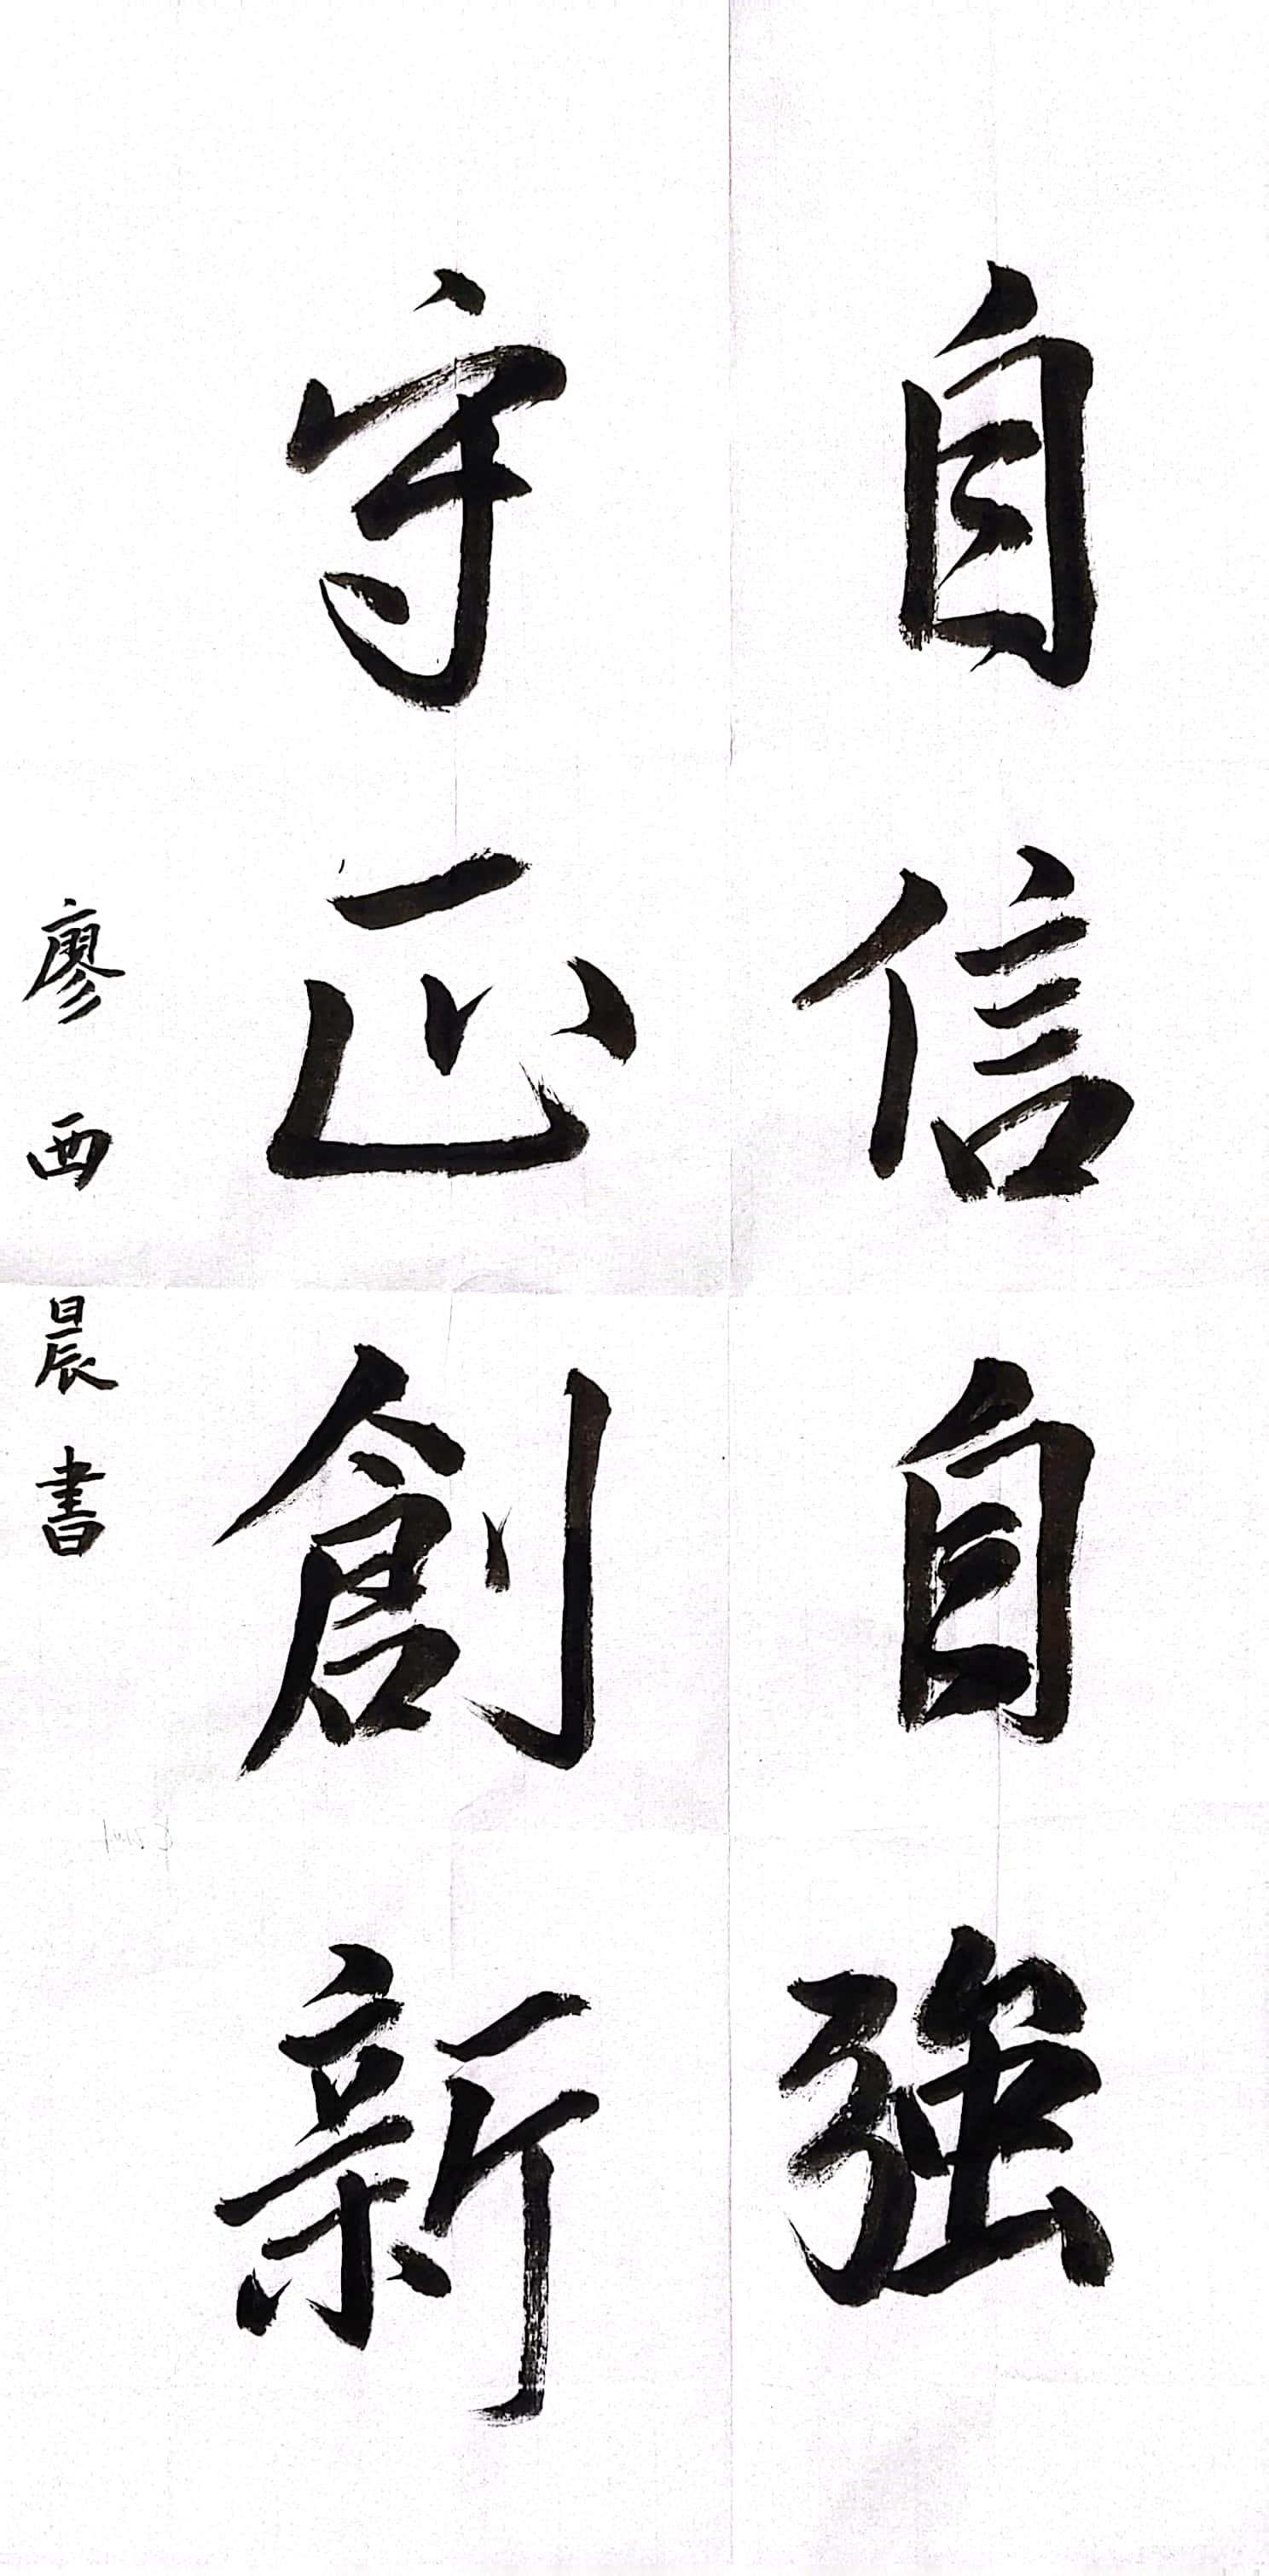 自信自強
守正創新
廖西晨書